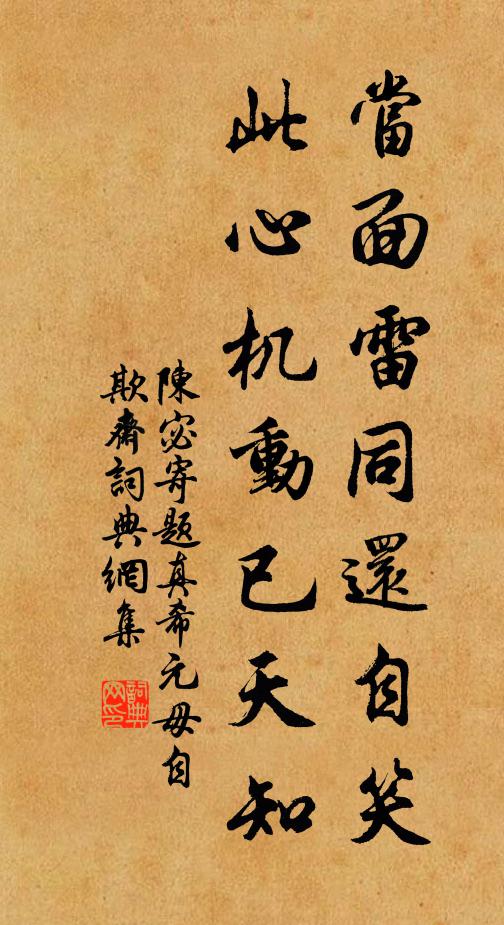 當面雷同還自笑
此心机動已天知
陳宓寄題真希元毋自
欺齋詞典網集
詞典網印